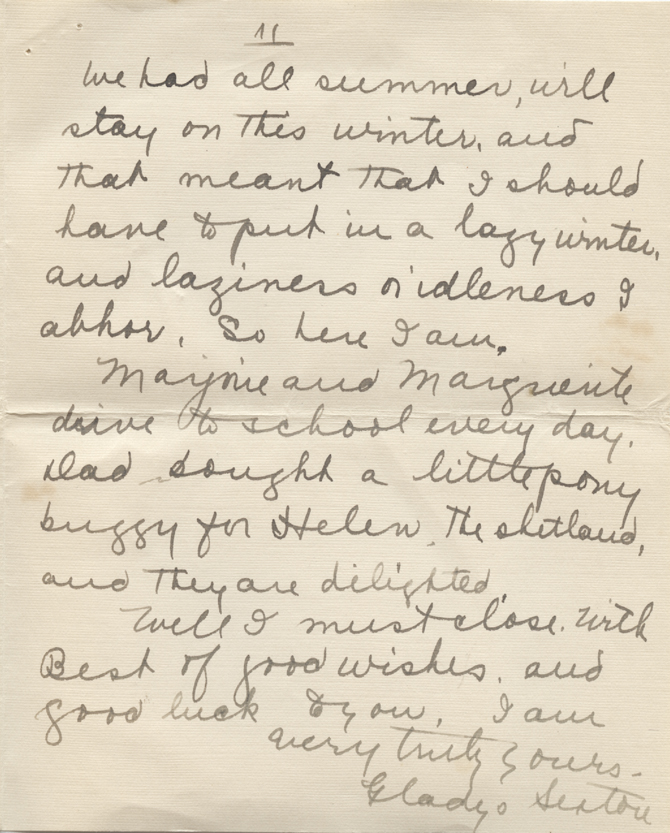 11
we had all summer, will
stay on this winter, and
that meant that I should
have to put in a lazy winter,
and laziness or idleness I
abhor. So here I am.
Marjorie and Marguerite
drive to school every day.
Dad bought a little pony
buggy for Helen, the shetland,
and they are delighted.
Well I must close. With
Best of good wishes, and
good luck to you, I am
very truly yours-
Gladys Sexton